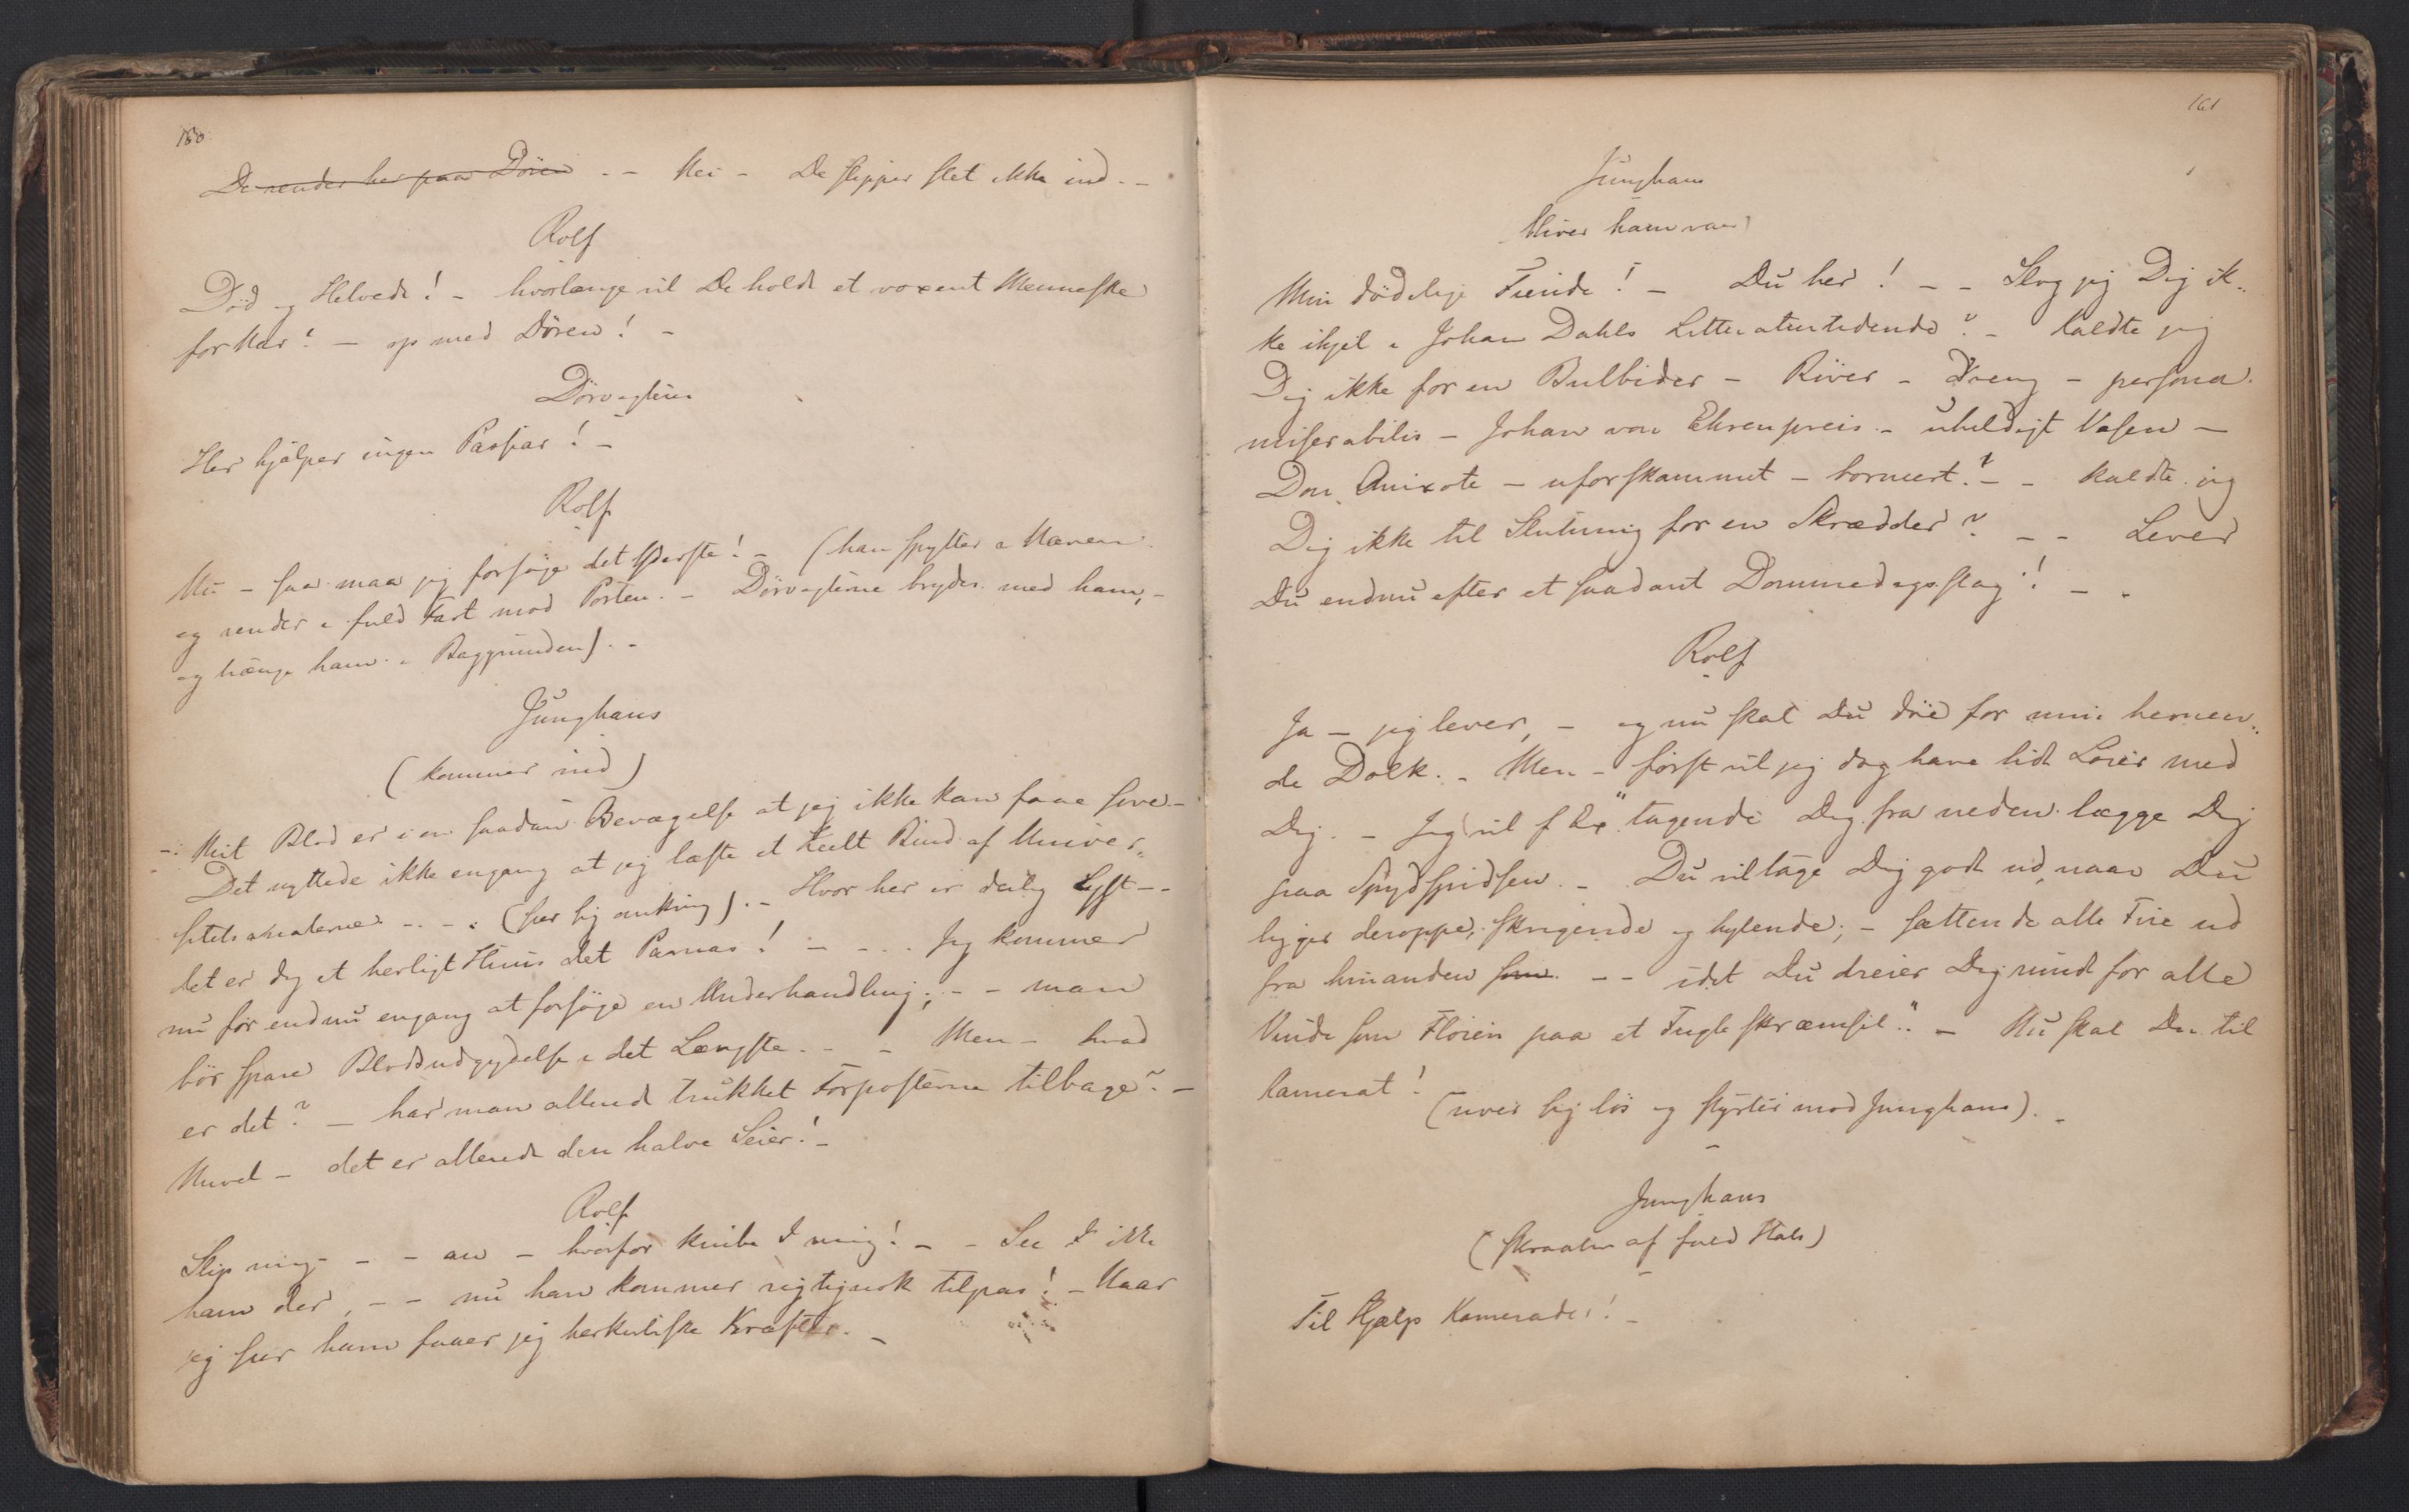 160.
De render her paa Dören - - Nei - De slipper slet ikke ind. -
Rolf
Död og Helvede! - hvorlænge vil De holde et voxent Menneske
for Nar? - op med Dören! -
Dörvogteren
Her hjælper ingen Passiar! -
Rolf
Nu - saa maa jeg forsöge det Yderste! - (han spytter i Næven
og render i fuld Fart mod Porten. - Dörvogterne brydes med ham, -
og trænge ham i Baggrunden). -
Junghans
(kommer ind)
- : Mit Blod er i en saadan Bevægelse at jeg ikke kan faae sove. -
Det nyttede ikke engang at jeg læste et heelt Bind af Univer=
sitetsannalerne - . - . (seer sig omkring). - Hvor her er deilig Lyst - -
det er dog et herligt Huus det Parnas! - - . . Jeg kommer
nu för endnu engang at forsöge en Underhandling; - - man
bör spare Blodsudgydelse i det Længste. - - Men - hvad
er det? - har man allerede trukket Forposterne tilbage? -
Nuvel - det er allerede den halve Seier! -
Rolf
Slip mig - - - au - hvorfor knibe I mig! - - See I ikke
ham der, - - nu han kommer rigtignok tilpas! - Naar
jeg seer ham faaer jeg herkuliske Kræfter. -
161
Junghans
bliver ham vaer)
Min dödelige Fiende! - Du her! - - Slog jeg Dig ik=
ke ihjel i Johan Dahls Litteraturtidende? - kaldte jeg
Dig ikke for en Bulbider - Röver - Dreng - persona
miserabilis - Johan von Ehrenpreis - uheldigt Væsen -
Don Quixote - uforskammet - borneert? - - kaldte jeg
Dig ikke til Slutning for en Skrædder? - - Lever
Du endnu efter et saadant Dommedagsslag! - -
Rolf
Ja - jeg lever, - og nu skal Du döe for min hevnen=
de Dolk. - Men - först vil jeg dog have lidt Löier med
Dig. - Jeg vil f Ex "tagende Dig fra neden lægge Dig
paa Spydspidsen. - Du vil tage Dig godt ud, naar Du
ligger deroppe, skrigende og hylende; - sættende alle Fire ud
fra hinanden som - - idet Du dreier Dig rundt for alle
Vinde som Flöien paa et Fugleskræmsel". - Nu skal Du til
Kamerat!
(river sig lös og styrter mod Junghans). -
Junghans
(skraaler af fuld Hals)
Til Hjælp Kamerader! -